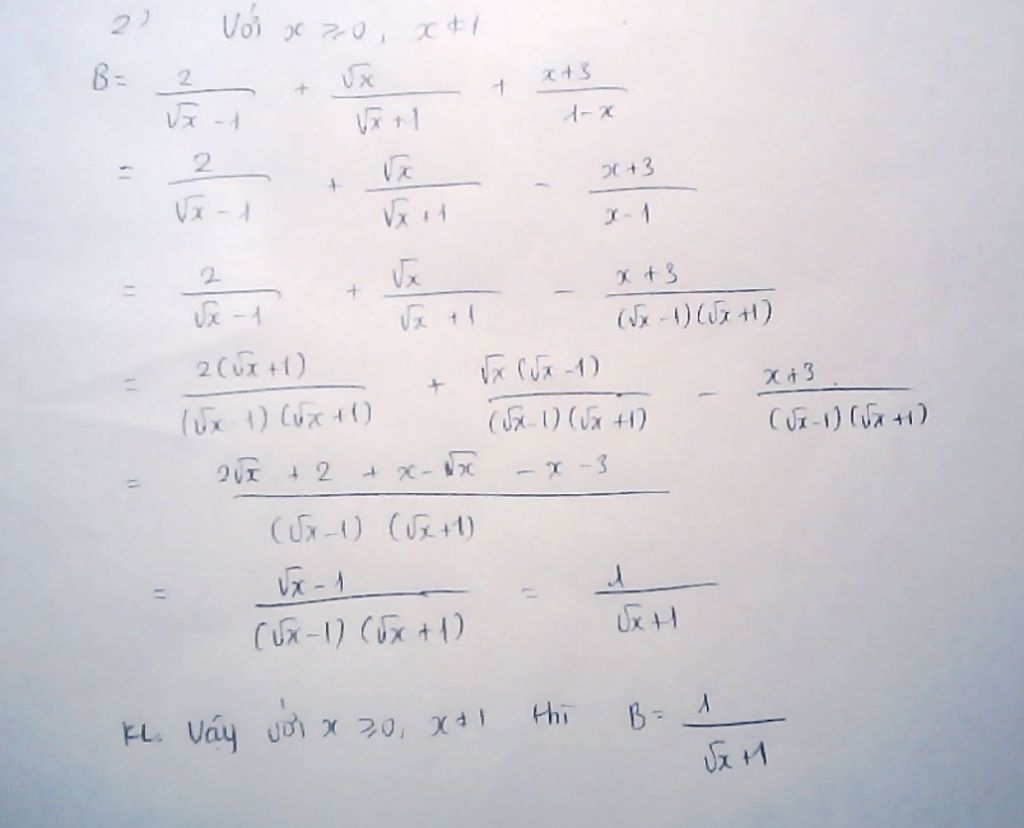 2) Với x ≥ 0, x ≠ 1
B = 2/(√x - 1) + √x/(√x + 1) + (x+3)/(1-x)
= 2/(√x - 1) + √x/(√x + 1) - (x+3)/(x-1)
= 2/(√x - 1) + √x/(√x + 1) - (x+3)/((√x - 1)(√x + 1))
= 2(√x + 1)/((√x - 1)(√x + 1)) + √x(√x - 1)/((√x - 1)(√x + 1)) - (x+3)/((√x - 1)(√x + 1))
= (2√x + 2 + x - √x - x - 3)/((√x - 1)(√x + 1))
= (√x - 1)/((√x - 1)(√x + 1)) = 1/(√x + 1)
KL. Vậy với x ≥ 0, x ≠ 1 thì B = 1/(√x + 1)